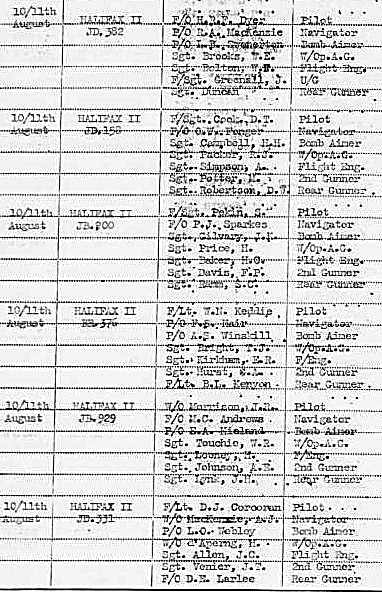 10/11th August HALIFAX II JD.382 F/O H.R.F. Dyer Pilot
P/O R.A. MacKenzie Navigator
P/O L.B. Bomb Aimer
Sgt. Brooks, W.E. W/Op.A.G.
Sgt. Bolton, W.F. Flight Eng.
F/Sgt. Greenall, J. U/G
Sgt. Duncan Rear Gunner
10/11th August HALIFAX II JD.158 F/Sgt. Cook, D.T. Pilot
F/O O.W. Navigator
Sgt. Campbell, H.H. Bomb Aimer
Sgt. Packer, R.J. W/Op.A.G.
Sgt. Simpson, A. Flight Eng.
Sgt. Potter, 2nd Gunner
Sgt. Robertson, D.T. Rear Gunner
10/11th August HALIFAX II JB.900 F/Sgt. Pekin, S. Pilot
F/O P.J. Sparkes Navigator
Sgt. Gilvary, J. Bomb Aimer
Sgt. Price, H. W/Op.A.G.
Sgt. Baker, H.G. Flight Eng.
Sgt. Davis, F.P. 2nd Gunner
Sgt. S.C. Rear Gunner
10/11th August HALIFAX II F/Lt. W.N. Pilot
P/O F.S. Hair Navigator
P/O A.S. Winskill Bomb Aimer
Sgt. Bright, T.J. W/Op.A.G.
Sgt. Kirkham, E.R. F/Eng.
Sgt. Hurst, E.A. 2nd Gunner
F/Lt. B.L. Kenyon Rear Gunner
10/11th August HALIFAX II JB.929 W/O Morrison, J.R. Pilot
F/O M.C. Andrews Navigator
F/O E.A. Bomb Aimer
Sgt. Touchie, W.R. W/Op.A.G.
Sgt. Looney, F/Eng.
Sgt. Johnson, A.E. 2nd Gunner
Sgt. J.H. Rear Gunner
10/11th August HALIFAX II JD.331 F/Lt. D.J. Corcoran Pilot
W/O MacKenzie, A.J. Navigator
P/O L.O. Webley Bomb Aimer
W/O d'Aperng, H. W/Op.A.G.
Sgt. Allen, J.C. Flight Eng.
Sgt. Venter, J.E. 2nd Gunner
F/O D.E. Larlee Rear Gunner